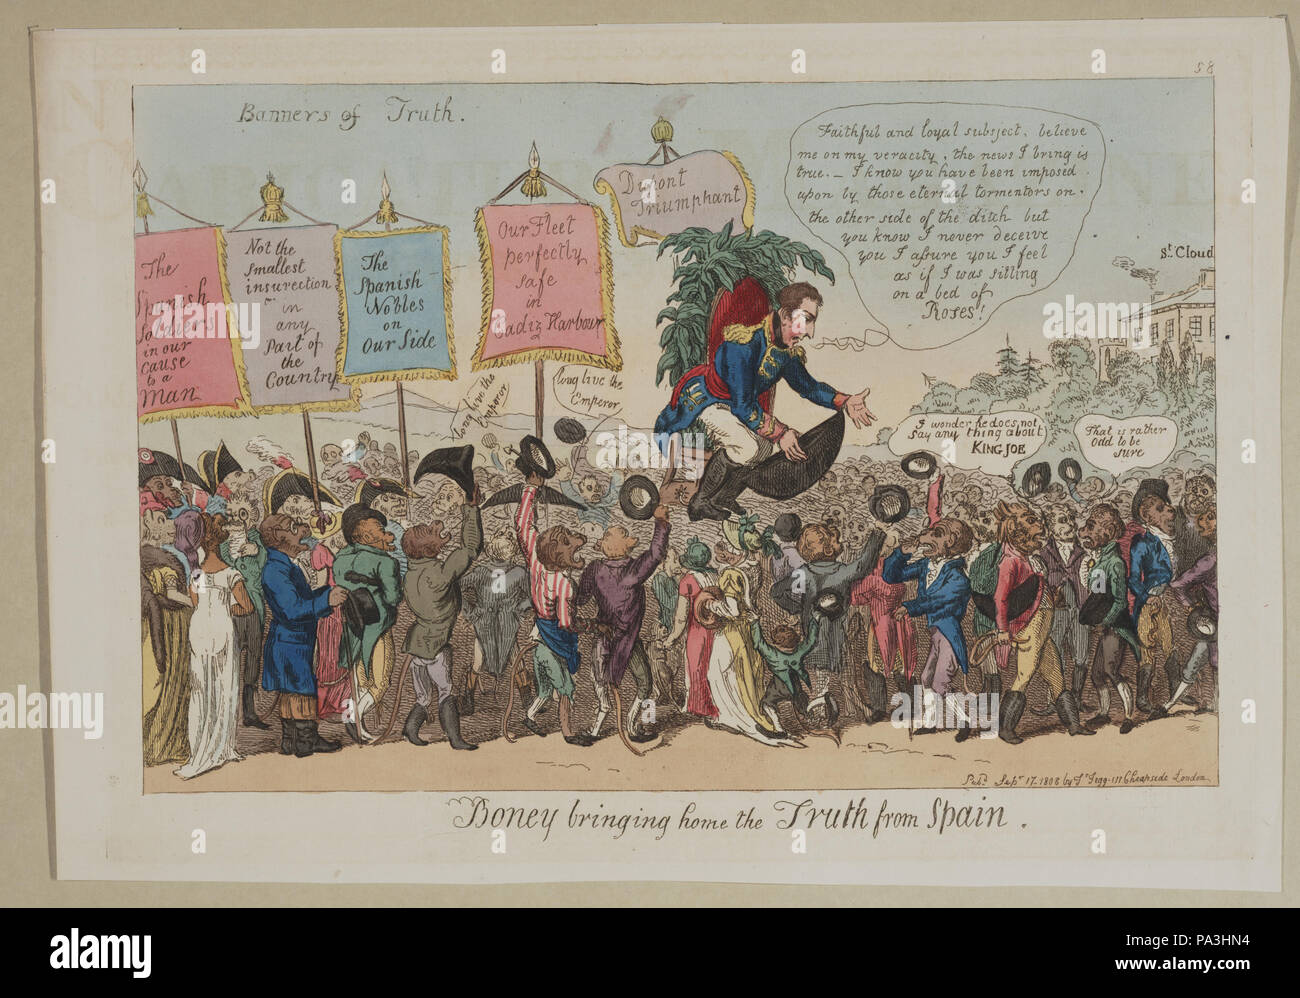 58
Banners of Truth.
The
Spanish
Soldiers
in our
cause
to a
Man
Not the
smallest
insurection
in
any
Part of
the
Country
The
Spanish
Nobles
on
Our Side
Our Fleet
perfectly
safe
in
Cadiz Harbour
Dupont
Triumphant
Faithful and loyal subsject, believe
me on my veracity, the news I bring is
true. — I know you have been imposed
upon by those eternal tormentors on.
the other side of the ditch but
you know I never deceive
you I assure you I feel
as if I was sitting
on a bed of
Roses!
St. Cloud
long live the
Emperor
long live the
Emperor
I wonder he does not
say any thing about
KING JOE
That is rather
odd to be
sure
Pubd. Sepr 17-1808 by Ts Tegg-111 Cheapside London
Boney bringing home the Truth from Spain.
alamy
alamy
a
a
a
a
alamy
Image ID: PA3HN4
www.alamy.com